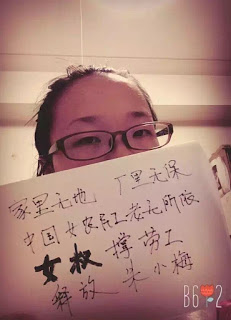 家里无地 厂里无保
中国女农民工老无所依
女权 撑 劳工
释放 朱小梅
B612